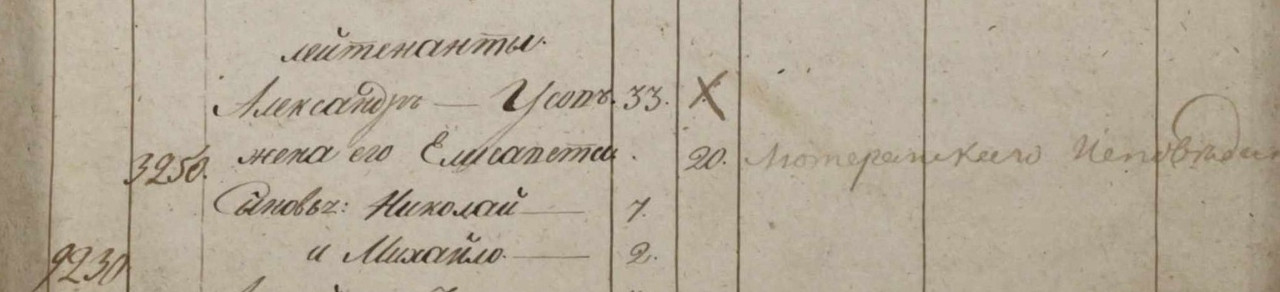 лейтенанты.
Александръ — Усовъ. 33. X
3250. жена его Елисапета . 20. Лютеранскаго Исповѣдан
Сыновья: Николай — 7.
и Михайло. — 2.
9230